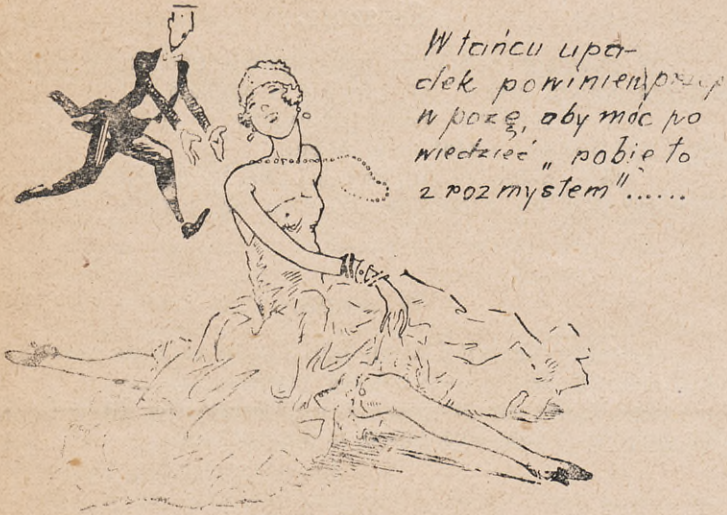 W tańcu upa-
dek powinien
w pozę, aby móc po
wiedzieć „ robię to
z rozmysłem"......